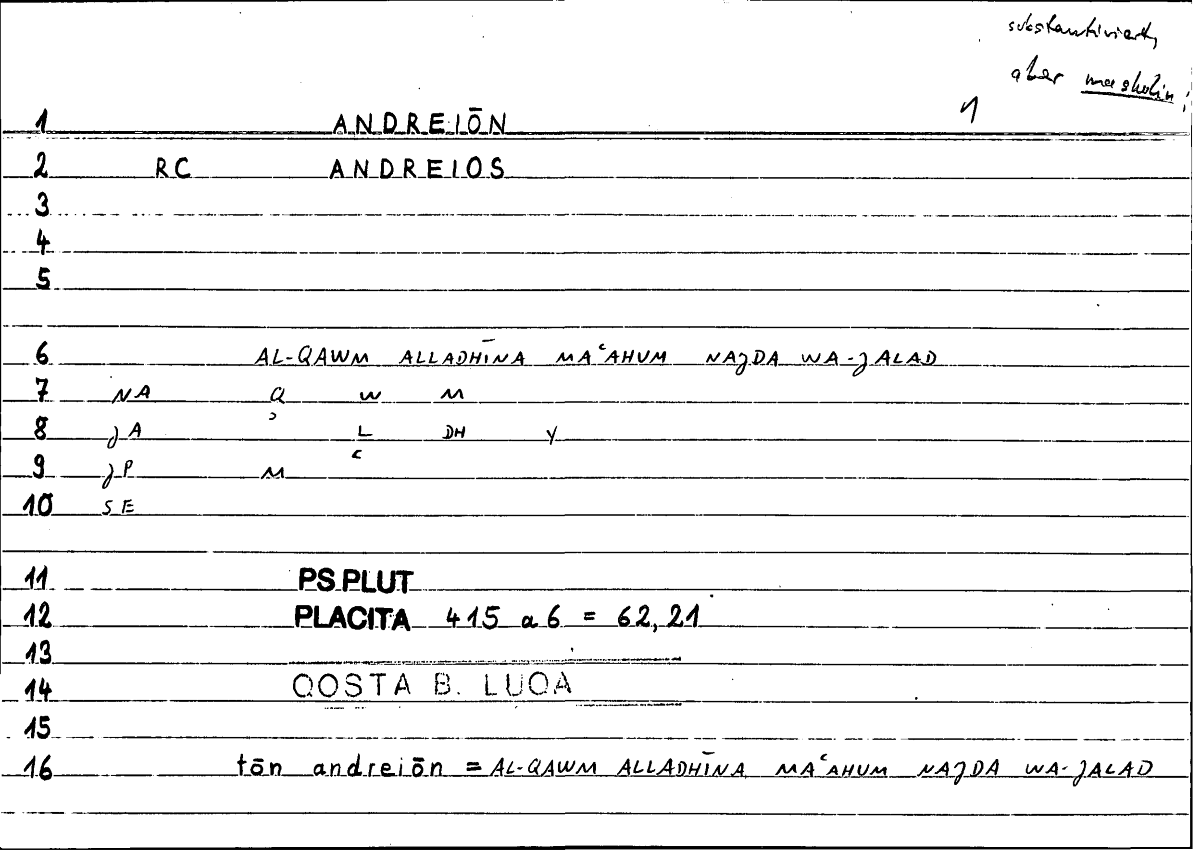 substantiviert,
aber maskulin
1
1 ANDREIŌN
2 RC ANDREIOS
3
4
5
6 AL-QAWM ALLADHĪNA MAʿAHUM NAJDA WA-JALAD
7 NA Q W M
8 JA ʾ L DH Y
9 JP ʿ M
10 SE
11 PS.PLUT
12 PLACITA 415 a 6 = 62,21
13
14 QOSTA B. LUQA
15
16 tōn andreiōn = AL-QAWM ALLADHĪNA MAʿAHUM NAJDA WA-JALAD